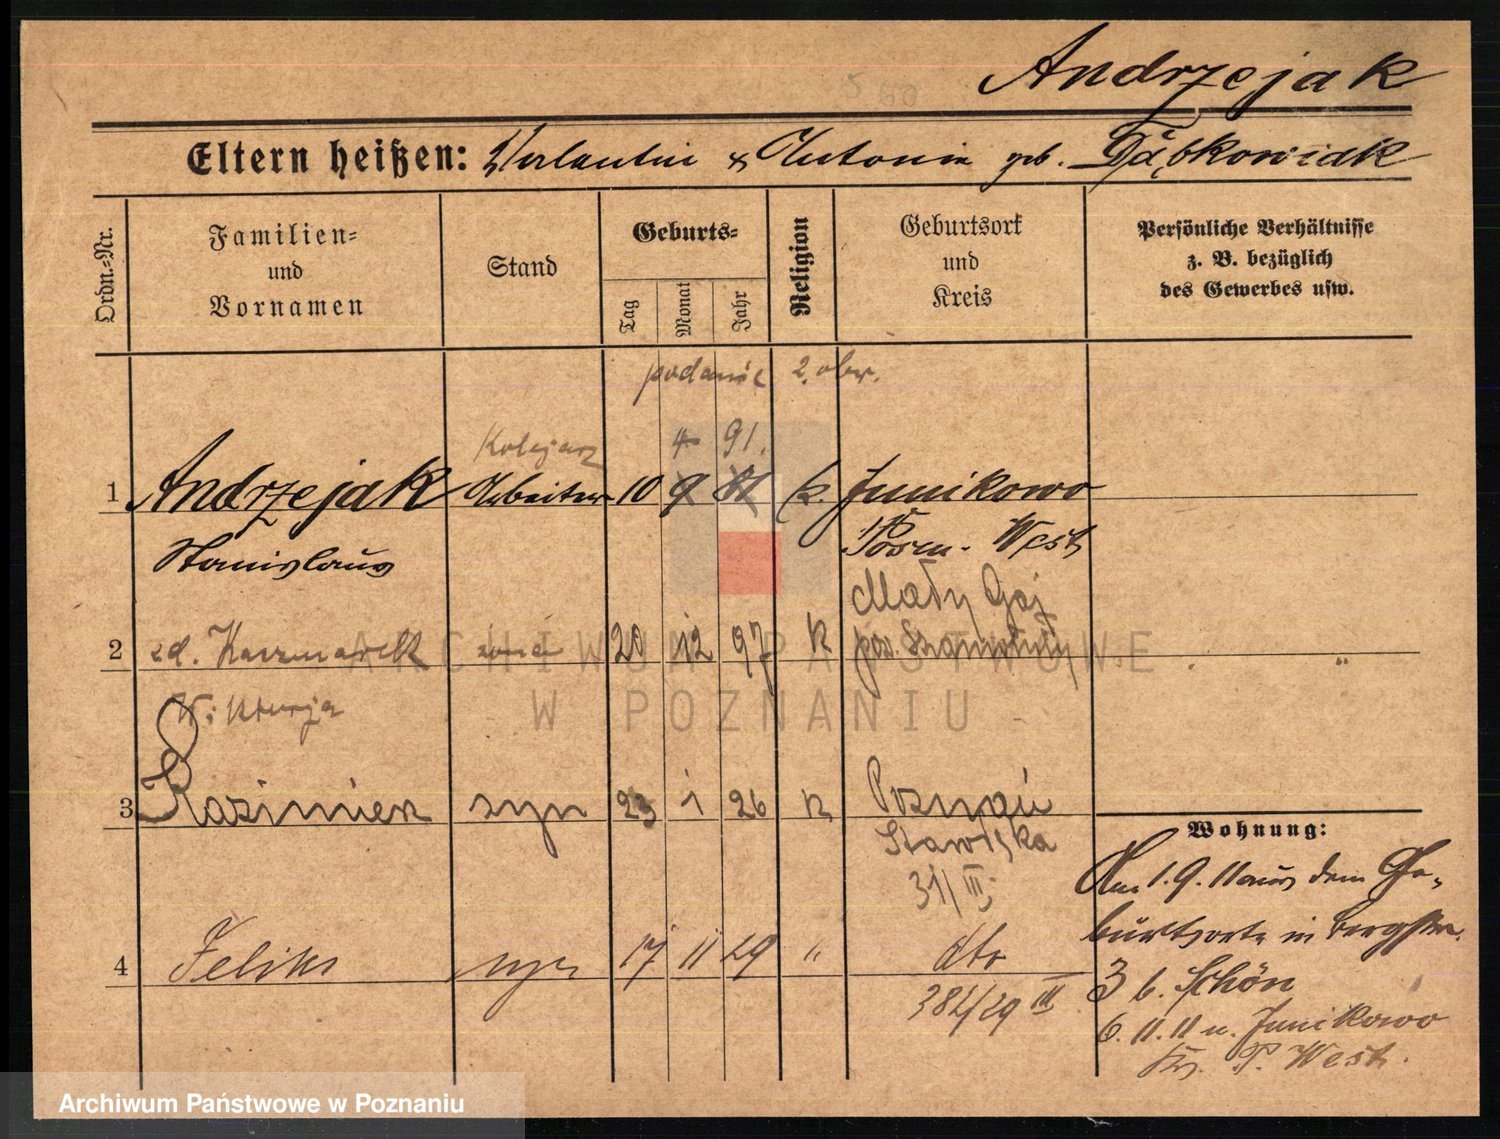 Andrzejak
Eltern heißen: Valentin & Antonie geb. Dąbkowiak
Ordn.-Nr.
Familien-
und
Vornamen
Stand
Geburts-
Tag
Monat
Jahr
Religion
Geburtsort
und
Kreis
Persönliche Verhältnisse
z. B. bezüglich
des Gewerbes usw.
podanie 2. obw.
Kolejarz 4 91.
1 Andrzejak Arbeiter 10 9 k. Junikowo
Stanislaus Posen-West
Mały Gaj
2 zd. Kaczmarek żona 20 12 97 k pow. Szamotuły "
Wiktorja
3 Kazimierz syn 23 1 26 k Poznań
Stawiska
31/III
4 Feliks syn 17 11 29 " dto
382/29 III
Wohnung:
Am 1.9.11 aus dem Ge-
burtsorte in Bergstr.
3 b. Schön
6.11.11 n. Junikowo
Krs. P. West.
ARCHIWUM PAŃSTWOWE
W POZNANIU
Archiwum Państwowe w Poznaniu